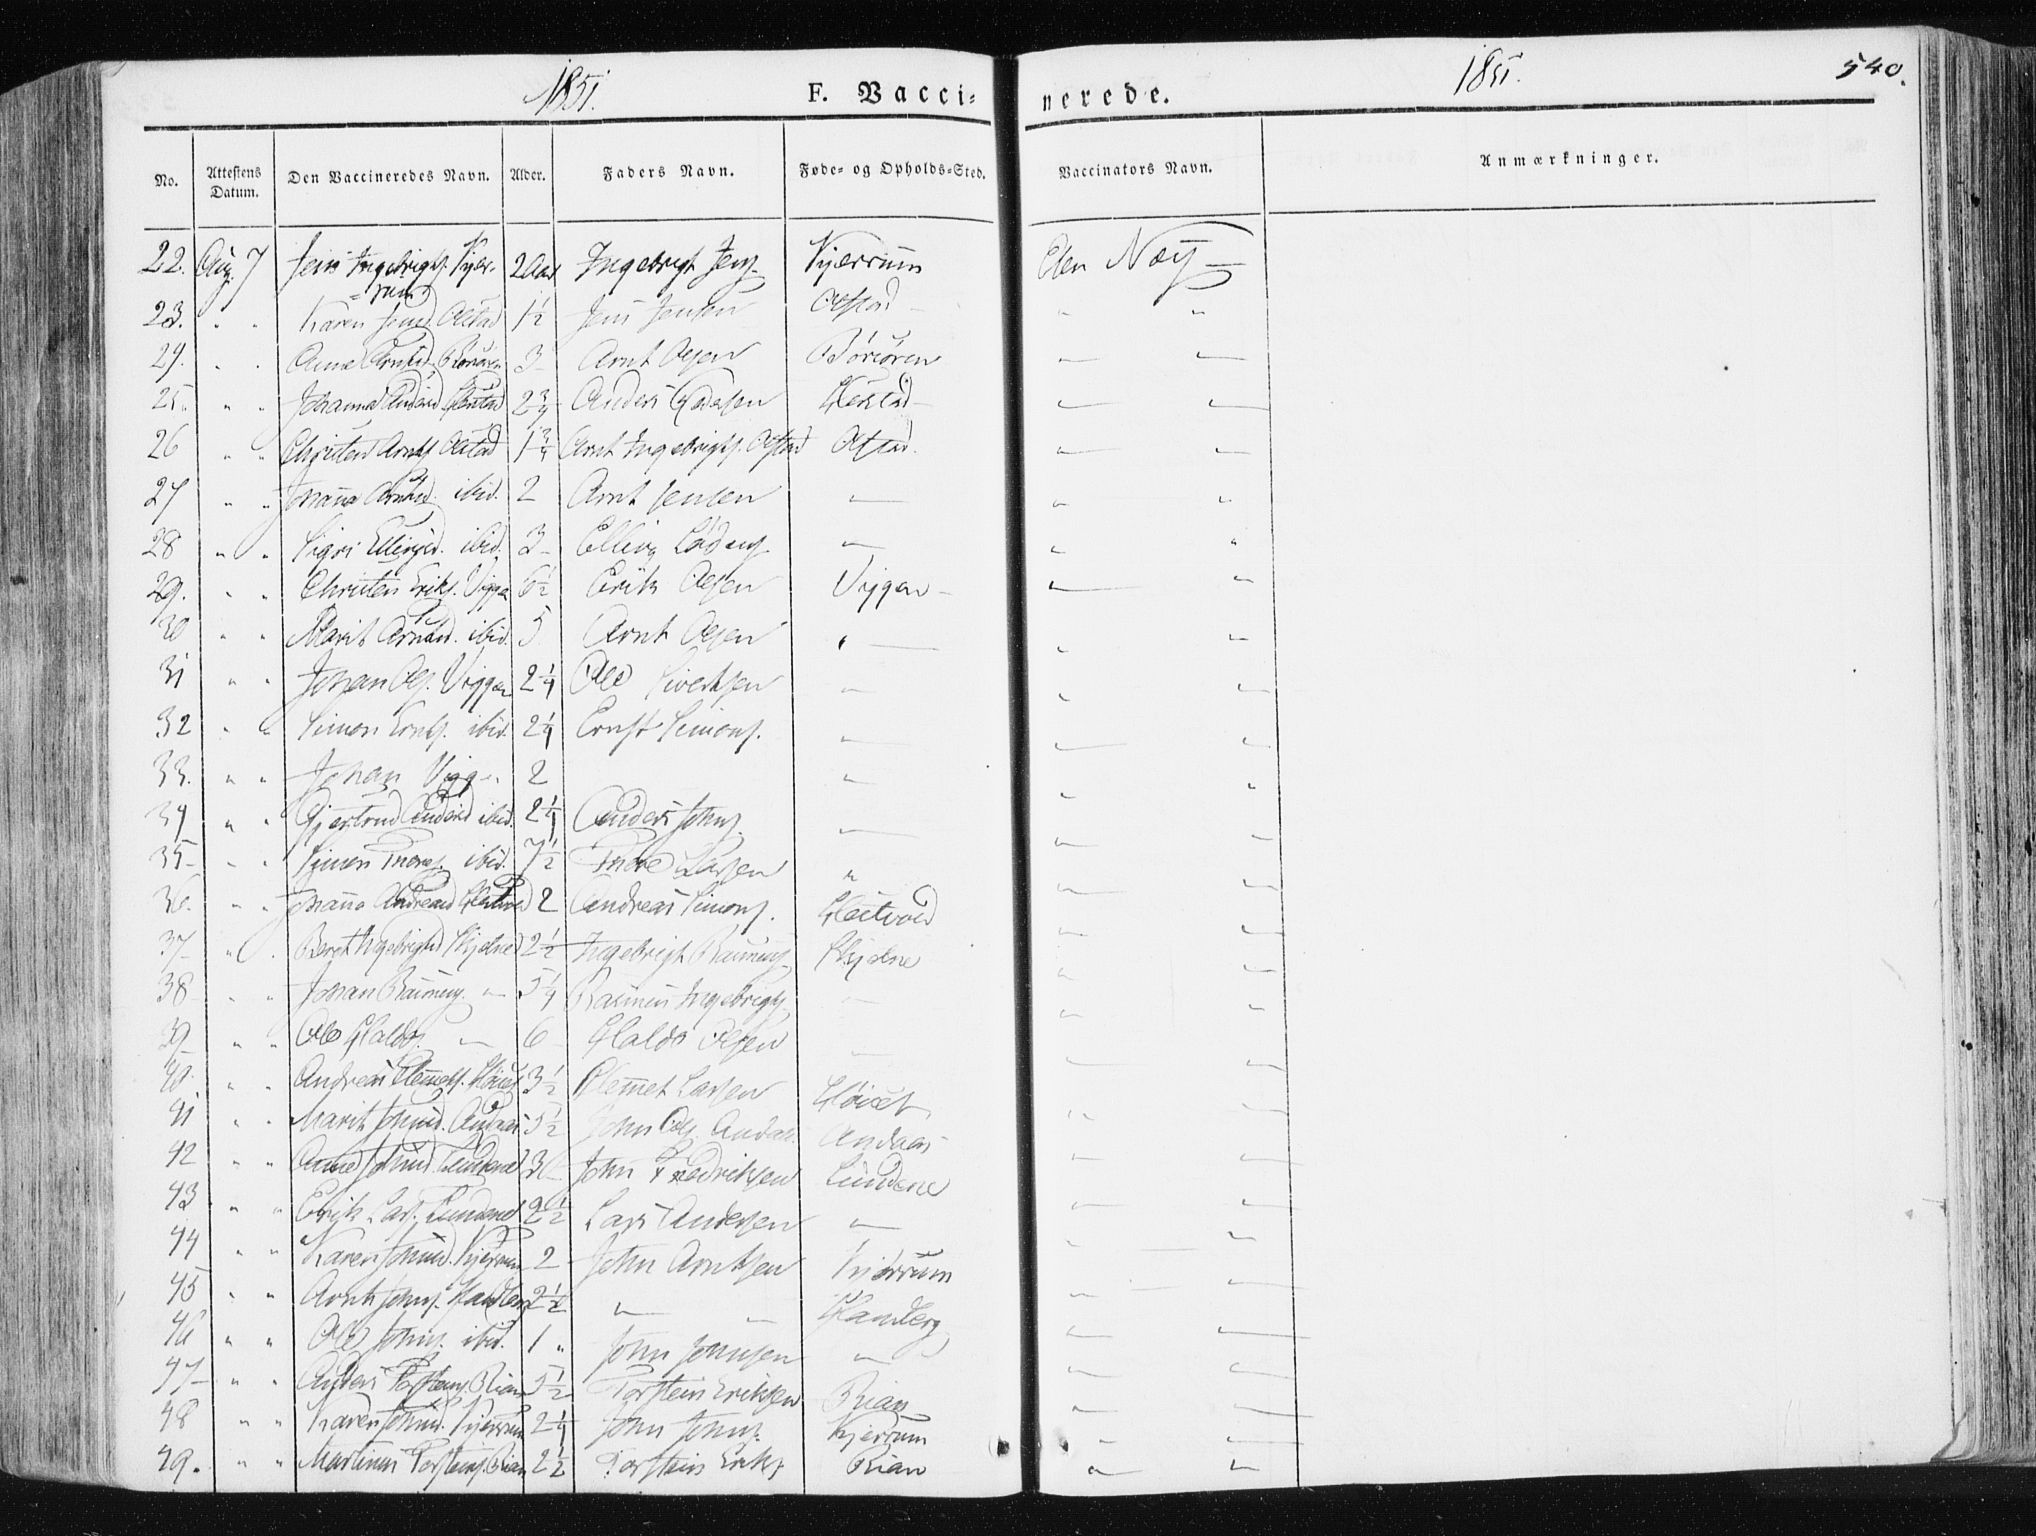 1851. F. Vacci= nerede. 1851. 540.
No. Attestens Datum. Den Vaccineredes Navn. Alder. Faders Navn. Føde- og Opholds-Sted. Vaccinators Navn. Anmærkninger.
22. Aug. 7 Jens Ingebrigts. Kjer- 2 Aar Ingebrigt Jens. Kjerrum
= rum
23. " " Karen Jensd. Olstad 1½ Jens Jensen Olstad " "
24. " " Anne Arntsd. Börsören 3 Arnt Olsen Börsören
25. " " Johanna Andersd. 2¾ Anders
26 " " Christen Arnts. Olstad 1¾ Arnt Ingebrigts. Olstad Olstad.
27 " " Johanna Arntsd. ibid. 2 Arnt Jensen " "
28 " " Sigri Ellingsd. ibid. 3 Elling
29. " " Christen Eriks. Viggen 6½ Erik Olsen Viggen
30 " " Marit Arntsd. ibid. 5 Arnt Olsen "
31 " " Johan Ols. Viggen 2¼ Ole Sivertsen
32 " " Simon Ernts. ibid. 2¼ Ernst Simons.
33. " " Johan Vigg 2
34 " " Gjertrud Andersd. ibid. 2¼ Anders Johns.
35 " " Simon Thores. ibid. 7½ Thore Larsen "
36. " " Johanna Andreasd. 2 Andreas Simons.
37 " " Beret Ingebrigtsd. Skjølne 2½ Ingebrigt Rasmus. Skjølne
38 " " Johan Rasmus. " 5¼ Rasmus Ingebrigts.
39 " " Ole Halds. " 6 Haldo Olsen
40. " " Andreas Klemets. 3½ Klemet Larsen
41 " " Marit Johnsd. Andaas 5½ John Ols. Andaas. Andaas
42 " " Anne Johnsd. Lundene 3 John Fredriksen Lundene
43 " " Erik Lars. Lundene 2½ Lars Andersen "
44 " " Karen Johnsd. Kjerrum 2 John Arntsen Kjerrum
45 " " Arnt Johns. 2½ "
46 " " Ole Johns. ibid. 1 " John Johnsen "
47 " " Anders Torsteins. Rian 5½ Torstein Eriksen Rian
48 " " Karen Johnsd. Kjerrum 2¼ John Johns. Kjerrum
49. " " Martinus Torsteins. Rian 2½ Torstein Eriks. Rian